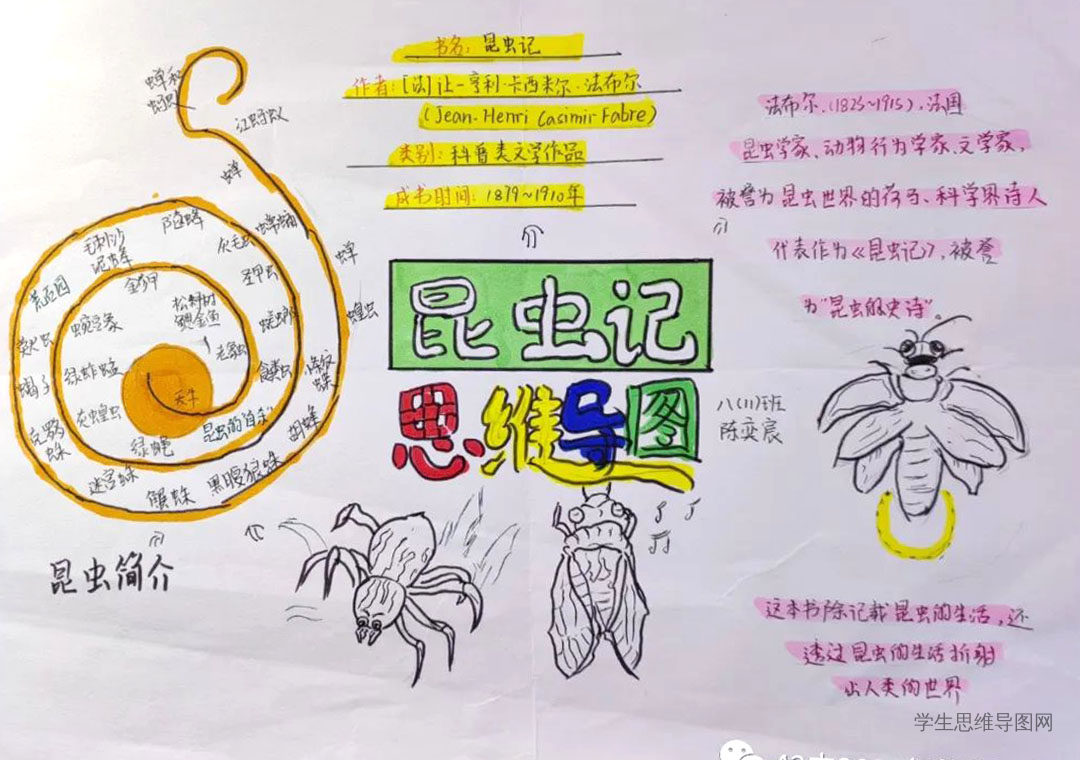 书名：昆虫记
作者：[法]让-亨利·卡西米尔·法布尔
(Jean-Henri Casimir Fabre)
类别：科普类文学作品
成书时间：1879~1910年
昆虫记
思维导图
八(11)班
陈奕宸
法布尔、(1823~1915)，法国
昆虫学家、动物行为学家、文学家，
被誉为昆虫世界的荷马、科学界诗人
代表作为《昆虫记》，被誉
为"昆虫的史诗"
这本书除记载昆虫的生活，还
透过昆虫的生活折射
出人类的世界
蝉和
蚂蚁
红蚂蚁
蝉
蝉
蝗虫
灰毛虫
毛刺沙
泥蜂
荒石园
金步甲
圣甲虫
松树
鳃金龟
萤火虫
蝎子
绿蚱蜢
灰蝗虫
天牛
绿蝇
昆虫的"自杀"
食粪虫
迷宫蛛
蟹蛛
黑腹狼蛛
胡蜂
昆虫简介
学生思维导图网